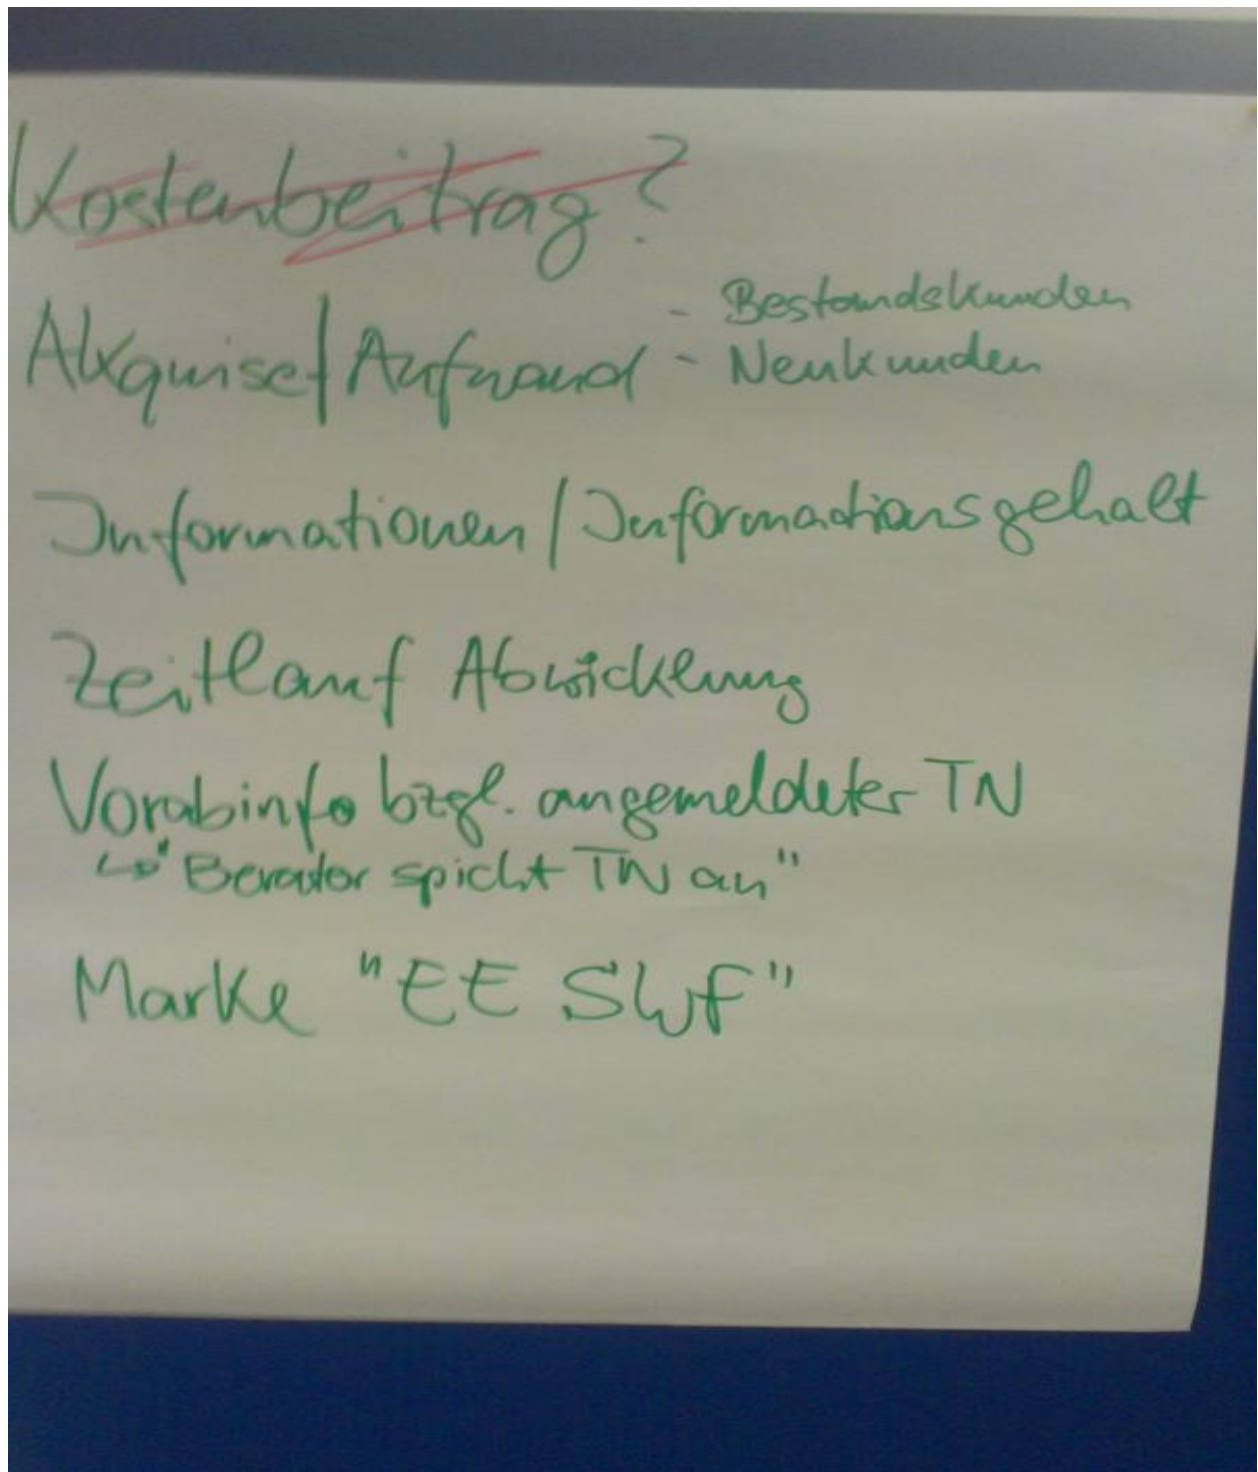 Kostenbeitrag?
Akquise/Aufwand - Bestandskunden
- Neukunden
Informationen/Informationsgehalt
Zeitlauf Abwicklung
Vorabinfo bzgl. angemeldeter TN
↳ "Berater spicht TN an"
Marke "EE SWF"